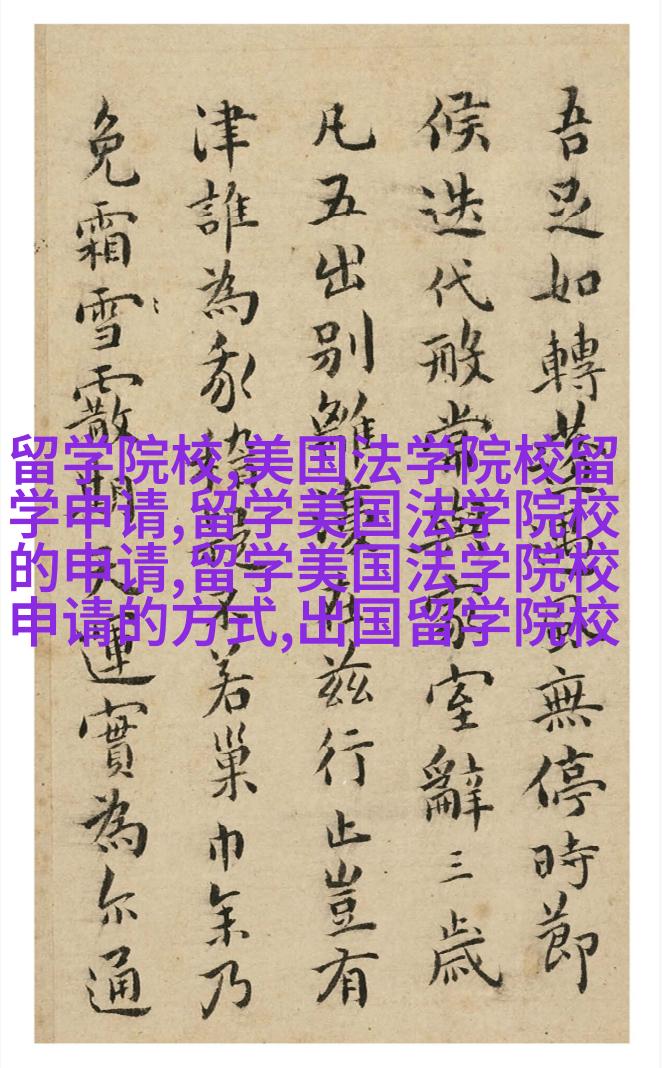 留学院校,美国法学院校留
学申请,留学美国法学院校
的申请,留学美国法学院校
申请的方式,出国留学院校
吾足如轉蓬遇風無停時節
候迭代般常與家室辭三歲
凡五出別離復在茲行止豈有
津誰為不若巢巾乃
免霜雪霰期天運實為尔通